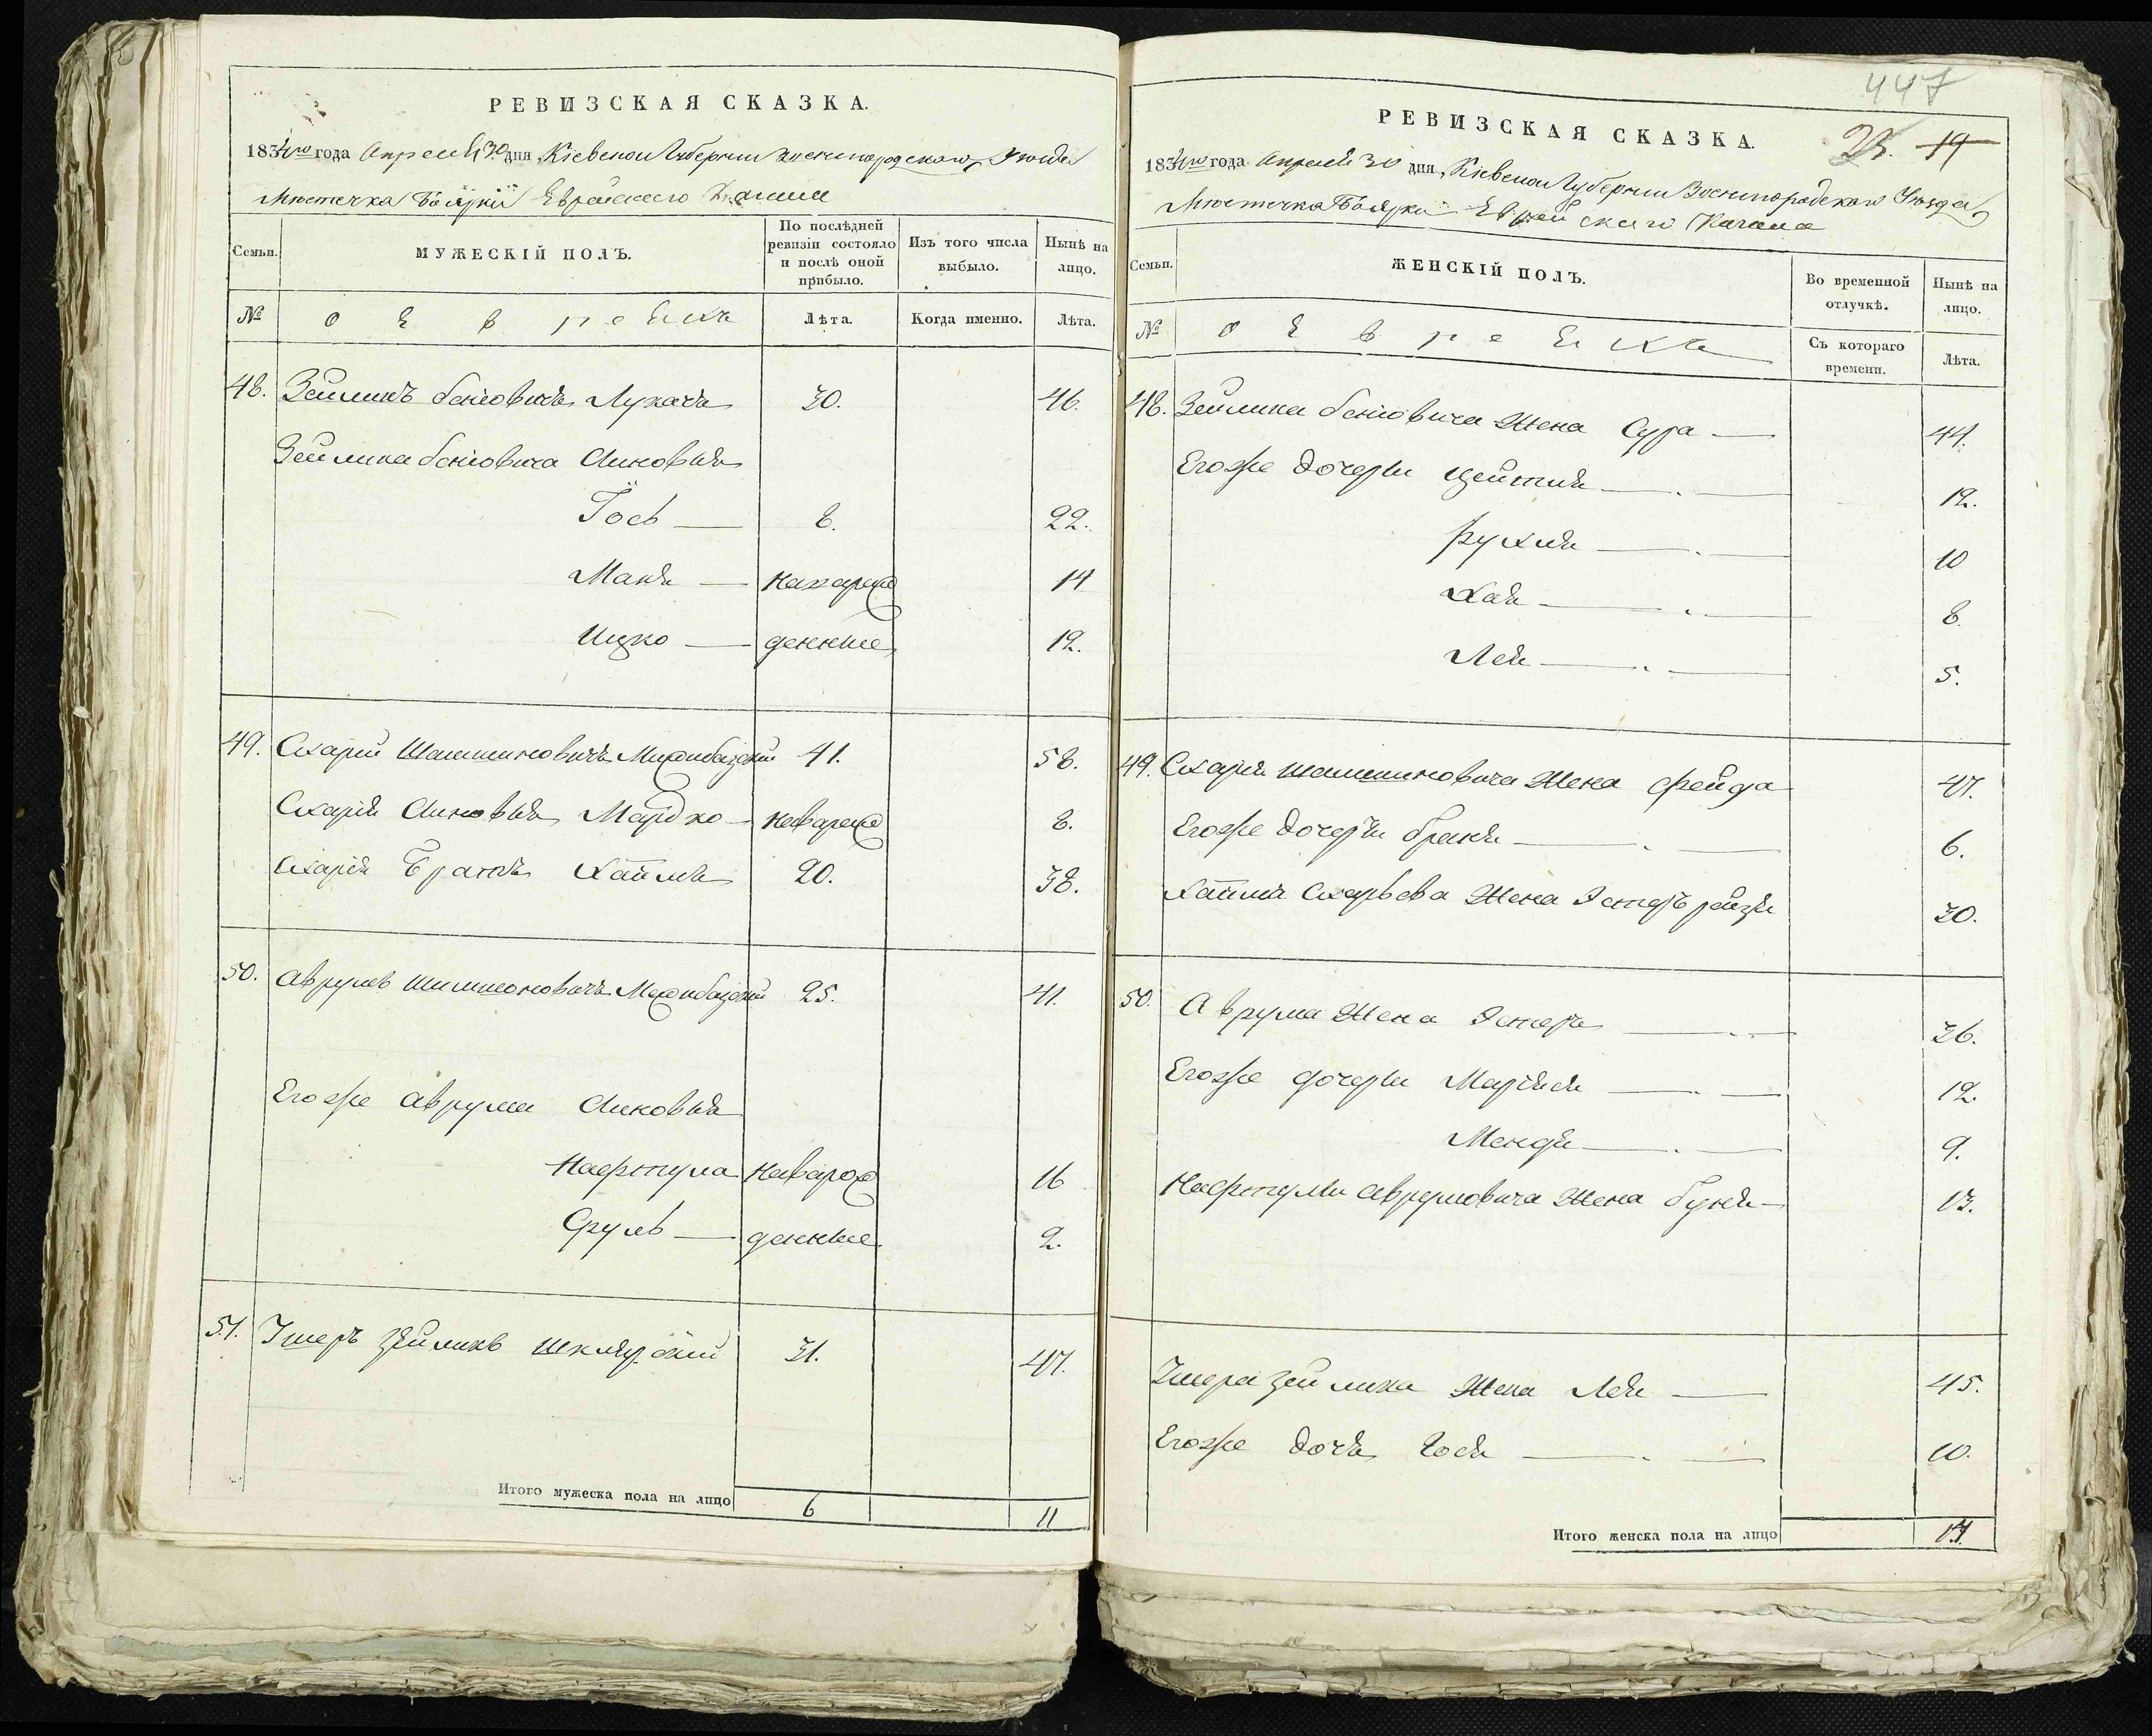 РЕВИЗСКАЯ СКАЗКА.
1834го года Апреля 30 дня, Кіевской Губерніи Звенигородского Уезда
Местечка Боярки Еврейского Кагала
Семьи.
МУЖЕСКІЙ ПОЛЪ.
По послѣдней ревизіи состояло и послѣ оной прибыло.
Изъ того числа выбыло.
Нынѣ на лицо.
№
о Евреихъ
Лѣта.
Когда именно.
Лѣта.
48. Зейликъ Беніовичъ Лукачъ 30. 46.
Зейлика Беніовича Сыновья
Іось 8. 22.
Маня новорож 14
Ицко денные 12.
49. Схарій Шимшиновичъ 41. 58.
Схарія Сыновья Мардко новорож 8.
Схарія Братъ Хаймъ 20. 38.
50. Аврумъ Шимшоновичъ 25. 41.
Егоже Аврума Сыновья
Нафтула новорож 16
Сруль денные 2.
51. Ушеръ Зейликъ Шклярскій 31. 47.
Итого мужеска пола на лицо 6 11
447
РЕВИЗСКАЯ СКАЗКА.
23. 19
1834го года Апреля 30 дня, Кіевской Губерніи Звенигородского Уезда
Местечка Боярки Еврейского Кагала
Семьи.
ЖЕНСКІЙ ПОЛЪ.
Во временной отлучкѣ.
Нынѣ на лицо.
№
о Евреихъ
Съ котораго времени.
Лѣта.
48. Зейлика Беніовича Жена Сура 44.
Егоже дочери Цейтля 12.
Рухля 10
Хая 8.
Лея 5.
49. Схарія Шимшиновича Жена Фейга 47.
Егоже дочери Браня 6.
Хайма Схарьева Жена Эстеръ Рейзя 30.
50. Аврума Жена Эстеръ 36.
Егоже дочери Марьяся 12.
Мендя 9.
Нафтули Аврумовича Жена Буня 13.
Ушера Зейлика Жена Лея 45.
Егоже дочь Гося 10.
Итого женска пола на лицо 14